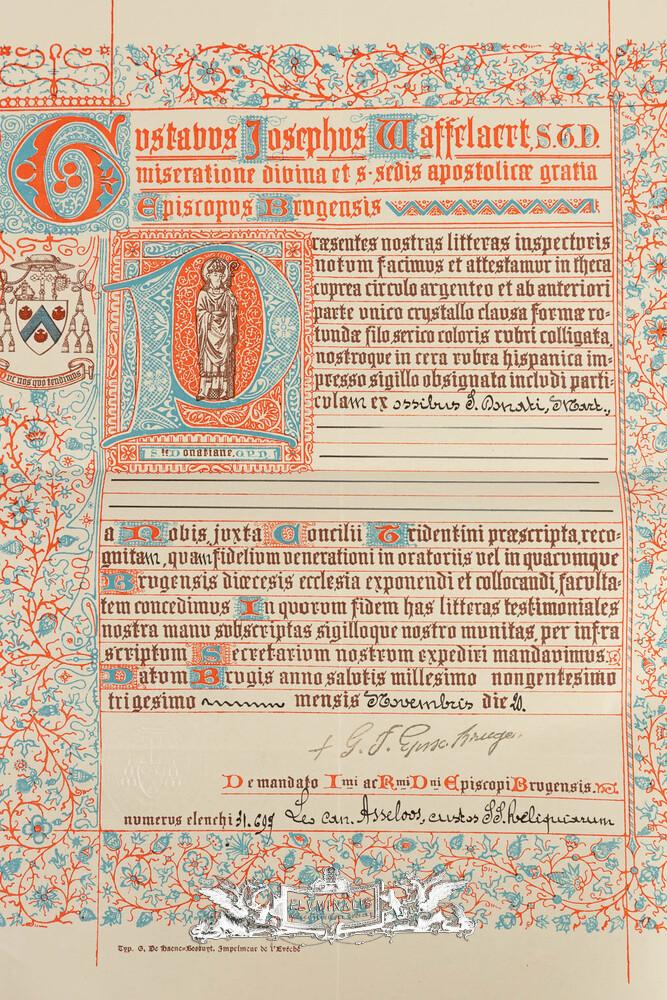 Gustavus Josephus Waffelaert, S.T.D.
miseratione divina et s. sedis apostolicæ gratia
Episcopus Brugensis
Præsentes nostras litteras inspecturis
notum facimus et attestamur in theca
cuprea circulo argenteo et ab anteriori
parte unico crystallo clausa formæ ro-
tundæ filo serico coloris rubri colligata,
nostroque in cera rubra hispanica im-
presso sigillo obsignata includi parti-
culam ex ossibus S. Donati, Mart.,
ut nos quo tendimus
S. D onatiane. O.P.N.
a Nobis, juxta Concilii Tridentini præscripta, reco-
gnitam, quam fidelium venerationi in oratoriis vel in quacumque
Brugensis diœcesis ecclesia exponendi et collocandi, faculta-
tem concedimus In quorum fidem has litteras testimoniales
nostra manu subscriptas sigilloque nostro munitas, per infra
scriptum Secretarium nostrum expediri mandavimus.
Datum Brugis anno salutis millesimo nongentesimo
trigesimo mensis Novembris die 20.
+ G. J. Episc. Brugen.
De mandato Illmi ac Rmi Dni Episcopi Brugensis.
numerus elenchi 31.699 Leo can. Asseloos, custos SS. Reliquiarum
FLUMINALIS
Typ. G. De Haene-Bossuyt, Imprimeur de l'Evêché